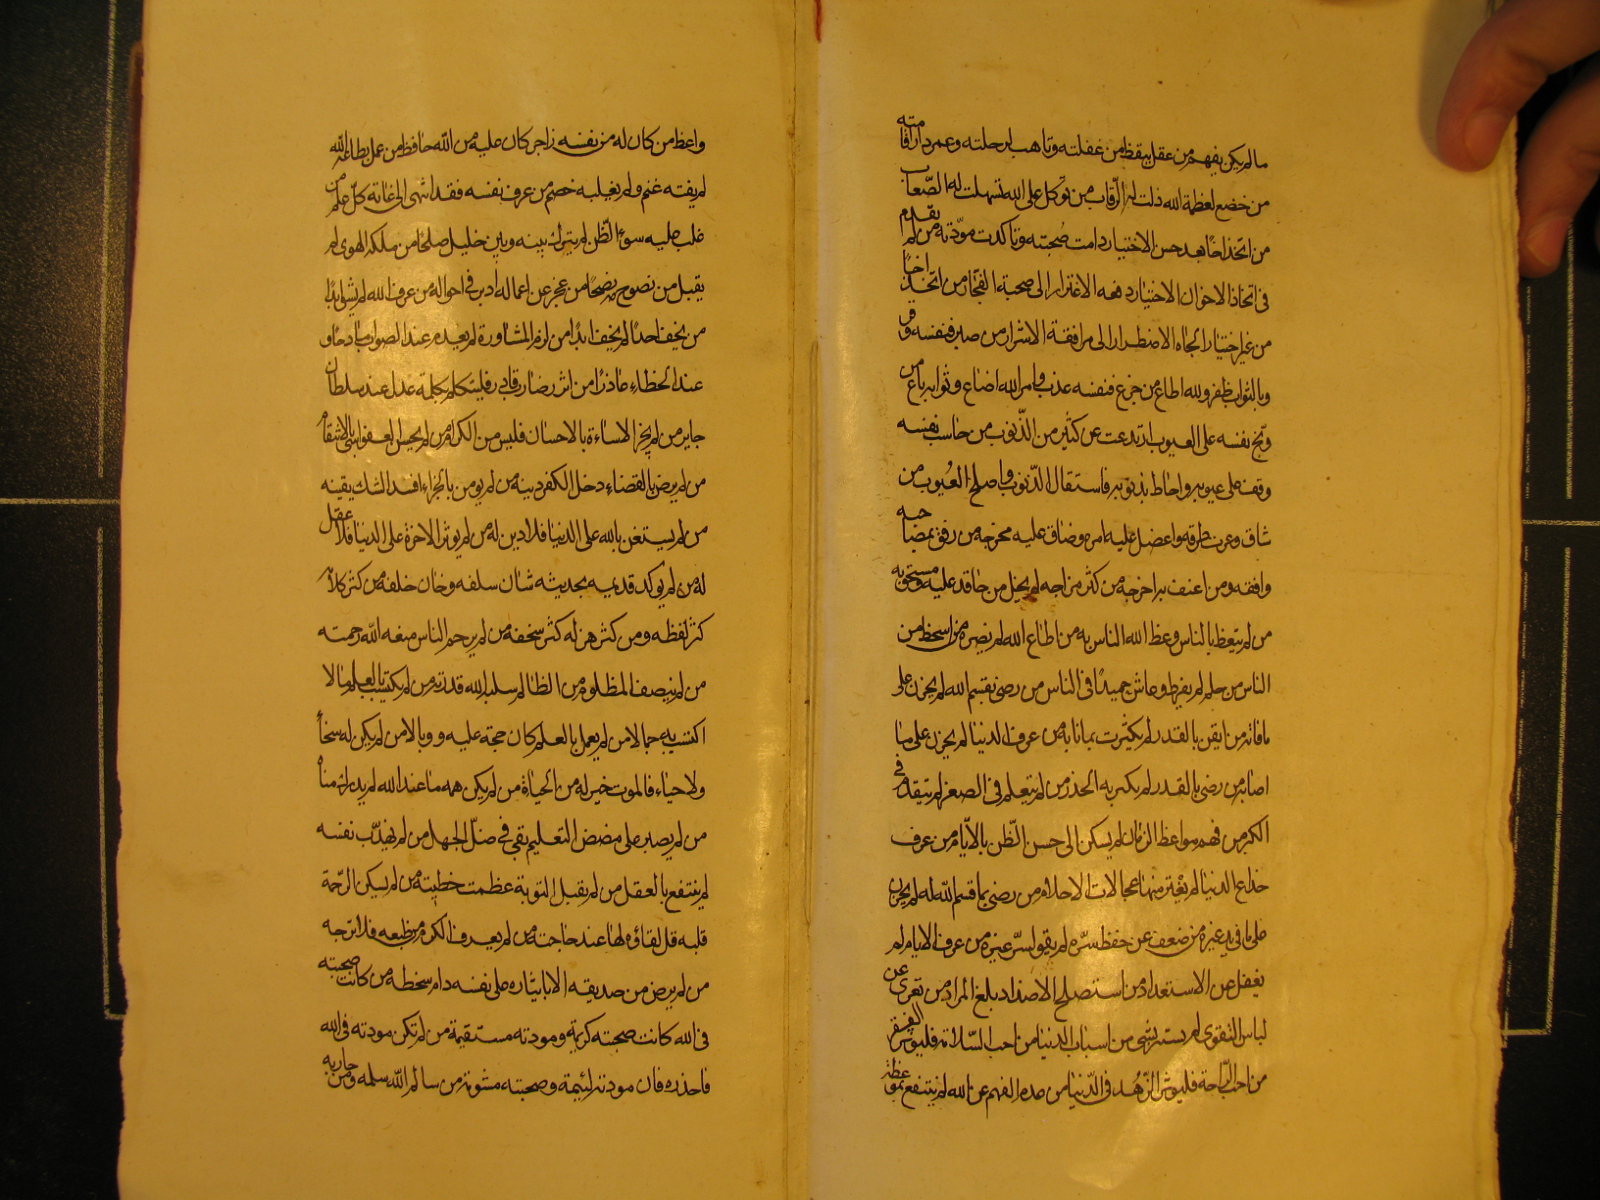 ما لم يكن يفهم من عقل تيقظ من غفلته وتاهب لرحلته وعمر دار اقامته
من خضع لعظمة الله ذلت له الرّقاب من توكل على الله تسهلت له الصّعاب
من اتخذ اخًا بعد حسن الاختيار دامت صُحبته وتاكدت مودّته من لم يقدم
فى اتخاذ الاخوان الاختبار دفعه الاغترار الى صحبة الفجّار من اتّخذ اخًا
من غير اختبار الجاه الاضطرار الى مرافقة الاشرار من صبر فنفسه وقر
وبالثواب ظفر ولله اطاع من جزع فنفسه عذب وامر الله اضاع وثوابه باع من
وبّخ نفسه على العيوب ارتدعت عن كثير من الذّنوب من حاسب نفسه
وقف على عيوبه واحاط بذنوبه فاستقال الذّنوب واصلح العُيوب من
شاق وعرت طرقه واعضل عليه امره وضاق عليه مخرجه من رفق بمصاحبه
وافقه ومن اعنف به اخرجه من كثر مزاحه لم يخل من حاقد عليه ومستخف به
من لم يتعظ بالناس وعظ الله الناس به من اطاع الله لم يضره من اسخط من
الناس من حلم لم يفرط وعاش حميدًا فى الناس من رضى بقسم الله لم يحزن على
ما فاته من ايقن بالقدر لم يكترث بما نابه من عرف الدنيا لم يحزن على ما
اصابه من رضى بالقدر لم يكربه الحذر من لم يتعلم فى الصغر لم يتقدم فى
الكبر من فهم مواعظ الزمان لم يسكن الى حسن الظّن بالايّام من عرف
خداع الدنيا لم يغتر منها بمحالات الاحلام من رضى بما قسم الله له لم يحزن
على ما فى يد غيره من ضعف عن حفظ سرّه لم يقو لسرّ غيره من عرف الايام لم
يغفل عن الاستعداد من استصلح الاضداد بلغ المراد من تعرى عن
لباس التقوى لم يستتر بشى من اسباب الدنيا من احب السّلامة فليوثر الفقر
من احب الرّاحة فليوثر الزّهد فى الدّنيا من عدم الفهم عن الله لم ينتفع بموعظة
واعظ من كان له من نفسه زاجر كان عليه من الله حافظ من عمل بطاعة الله
لم يفته غنم ولم يغلبه خصم من عرف نفسه فقد انتهى الى غاية كلّ علم من
غلب عليه سوء الظّن لم يترك بينه وبين خليل صلحًا من ملكه الهوى لم
يقبل من نصوح نصحًا من عجز عن اعماله ادبر فى احواله من عرف الله لم يشق ابدًا
من يخف احدًا لم يخف ابدًا من لزم المشاورة لم يعدم عند الصواب مادحًا و
عند الخطاء عاذرًا من اثر رضا رب قادر فليتكلم بكلمة عدل عند سلطان
جاير من لم يجز الاساءة بالاحسان فليس من الكرام من لم يحسن العفو اساء بالانتقام
من لم يرض بالقضاء دخل الكفر دينه من لم يومن بالجزاء افسد الشك يقينه
من لم يستغن بالله على الدنيا فلا دين له من لم يوثر الاخرة على الدنيا فلا عقل
له من لم يوكد قديمه بحديثه شان سلفه وخان خلفه من كثر كلامه
كثر لفظه ومن كثر هزله كثر سخفه من لم يرحم الناس منعه الله رحمته
من لم ينصف المظلوم من الظالم سلبه الله قدرته من لم يكتسب بالعلم مالا
اكتسب به جمالا من لم يعمل بالعلم كان حجة عليه ووبالا من لم يكن له سخاء
ولا حياء فالموت خير له من الحياة من لم يكن همه ما عند الله لم يدرك مناه
من لم يصبر على مضض التعليم بقى فى ذلّ الجهل من لم يهذّب نفسه
لم ينتفع بالعقل من لم يقبل التوبة عظمت خطيته من لم يسكن الرّحمة
قلبه قل لقاؤه لها عند حاجته من لم يعرف الكرم من طبعه فلا ترجه
من لم يرض من صديقه الا بايثاره على نفسه دام سخطه من كانت صحبته
فى الله كانت صحبته كريمة ومودته مستقيمة من لم تكن مودته فى الله
فاحذره فان مودته لئيمة وصحبته مشومة من سالم الله سلمه ومن حاربه